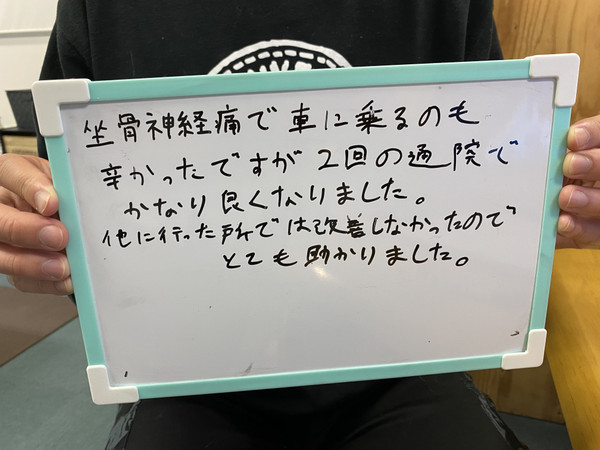 坐骨神経痛で車に乗るのも
辛かったですが2回の通院で
かなり良くなりました。
他に行った所では改善しなかったので
とても助かりました。